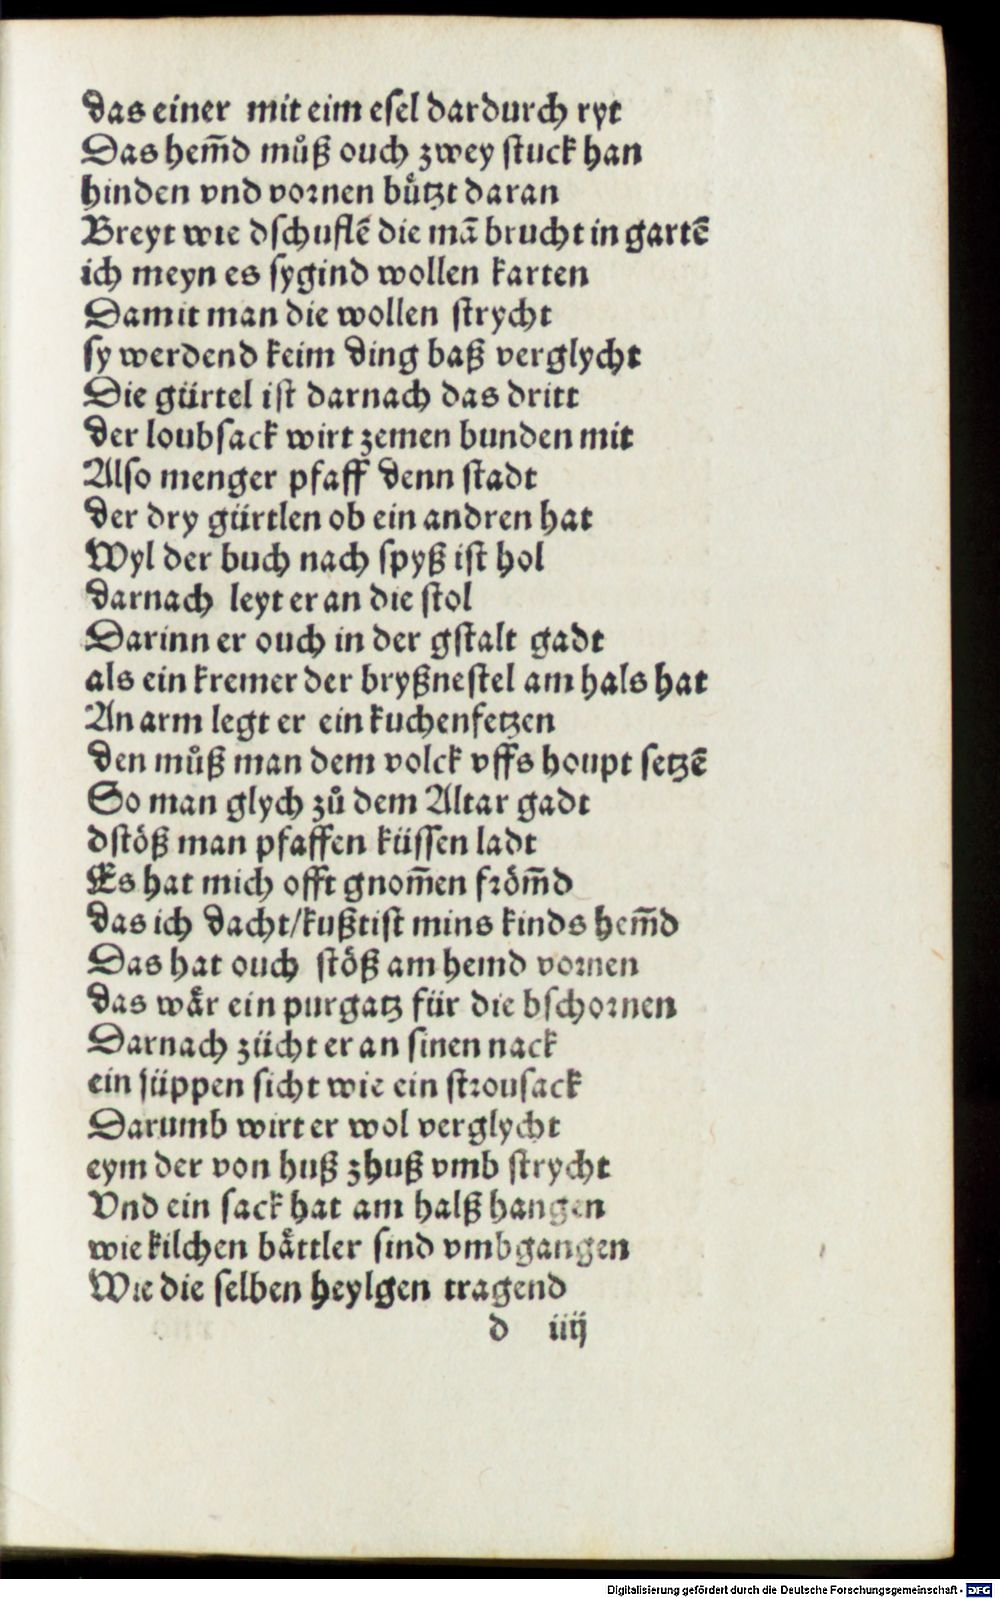 das einer mit eim esel dardurch ryt
Das hem̄d můß ouch zwey stuck han
hinden vnd vornen bůtzt daran
Breyt wie dschuflē die mā brucht in gartē
ich meyn es sygind wollen karten
Damit man die wollen strycht
sy werdend keim ding baß verglycht
Die gürtel ist darnach das dritt
der loubsack wirt zemen bunden mit
Also menger pfaff denn stadt
der dry gürtlen ob ein andren hat
Wyl der buch nach spyß ist hol
darnach leyt er an die stol
Darinn er ouch in der gstalt gadt
als ein kremer der bryßnestel am hals hat
An arm legt er ein kuchenfetzen
den můß man dem volck vffs houpt setzē
So man glych zů dem Altar gadt
dstöß man pfaffen küssen ladt
Es hat mich offt gnom̄en fröm̄d
das ich dacht/kußtist mins kinds hem̄d
Das hat ouch stöß am hemd vornen
das wår ein purgatz für die bschornen
Darnach zücht er an sinen nack
ein jüppen sicht wie ein strousack
Darumb wirt er wol verglycht
eym der von huß zhuß vmb strycht
Vnd ein sack hat am halß hangen
wie kilchen båttler sind vmbgangen
Wie die selben heylgen tragend
d iiij
Digitalisierung gefördert durch die Deutsche Forschungsgemeinschaft - DFG